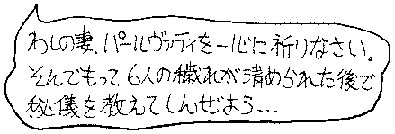 わしの妻、パールヴァティを一心に祈りなさい。
そんでもって、6人の穢れが清められた後で
秘儀を教えてしんぜよう…